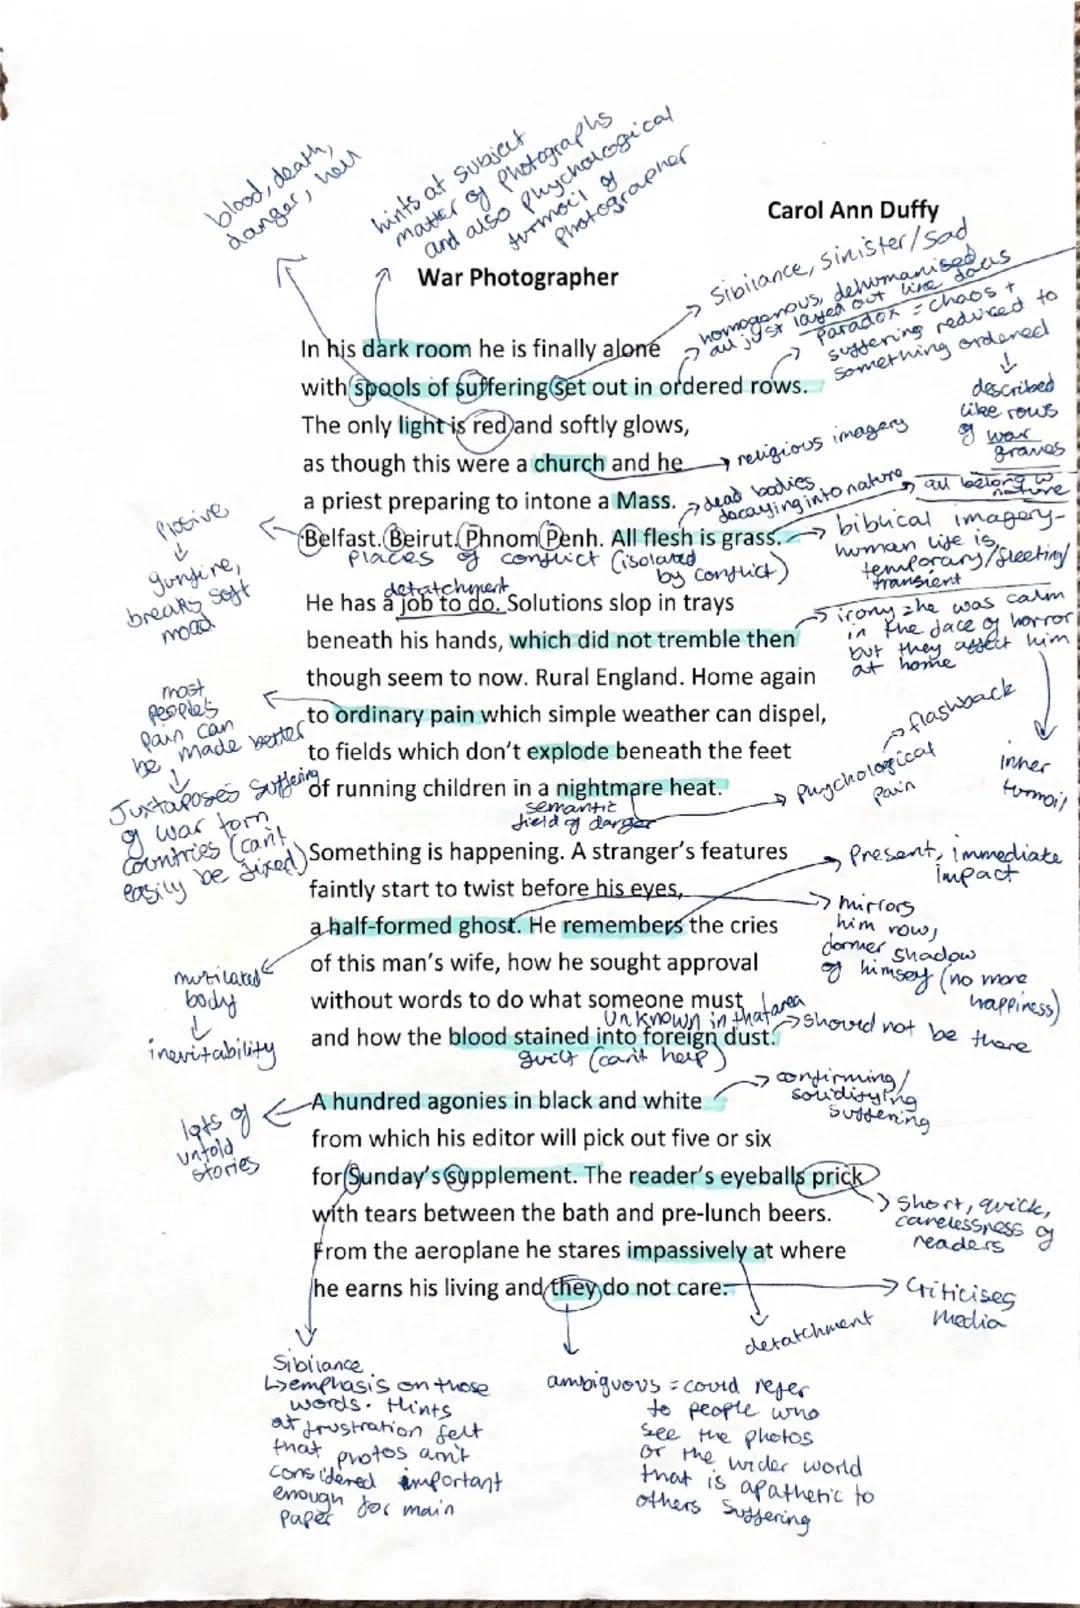 blood, death,
danger, hell
hints at subject
matter of photographs
and also phychological
turmoil of
photographer
Carol Ann Duffy
War Photographer
Sibilance, sinister/sad
homogenous, dehumanised
all just layed out like docs
Paradox = chaos +
suffering reduced to
something ordered
↓
described
like rows
of war
graves
In his dark room he is finally alone
with spools of suffering set out in ordered rows.
The only light is red and softly glows,
as though this were a church and he
religious imagery
a priest preparing to intone a Mass.
dead bodies
decaying into nature
all belong to
nature
Plosive
↓
gunfire,
breaks soft
mood
Belfast. Beirut. Phnom Penh. All flesh is grass.
Places of conflict (isolated
by conflict)
biblical imagery-
human life is
temporary/fleeting/
transient
detatchment
He has a job to do. Solutions slop in trays
beneath his hands, which did not tremble then
though seem to now. Rural England. Home again
to ordinary pain which simple weather can dispel,
to fields which don't explode beneath the feet
of running children in a nightmare heat.
irony = he was calm
in the face of horror
but they affect him
at home
inner
turmoil
most
peoples
pain can
be made better
↓
Juxtaposes suffering
of war torn
countries (can't
easily be fixed)
semantic
field of danger
flashback
phychological
pain
Something is happening. A stranger's features
faintly start to twist before his eyes,
a half-formed ghost. He remembers the cries
of this man's wife, how he sought approval
without words to do what someone must
and how the blood stained into foreign dust.
Present, immediate
impact
mirrors
him now,
former shadow
of himself (no more
happiness)
mutilated
body
↓
inevitability
Unknown in that area
should not be there
guilt (can't help)
A hundred agonies in black and white
from which his editor will pick out five or six
for Sunday's supplement. The reader's eyeballs prick
with tears between the bath and pre-lunch beers.
From the aeroplane he stares impassively at where
he earns his living and they do not care.
confirming/
solidifying
suffering
lots of
untold
stories
short, quick,
carelessness of
readers
Criticises
media
detatchment
Sibilance
↳ emphasis on those
words. Hints
at frustration felt
that photos arn't
considered important
enough for main
paper
ambiguous = could refer
to people who
see the photos
or the wider world
that is apathetic to
others suffering